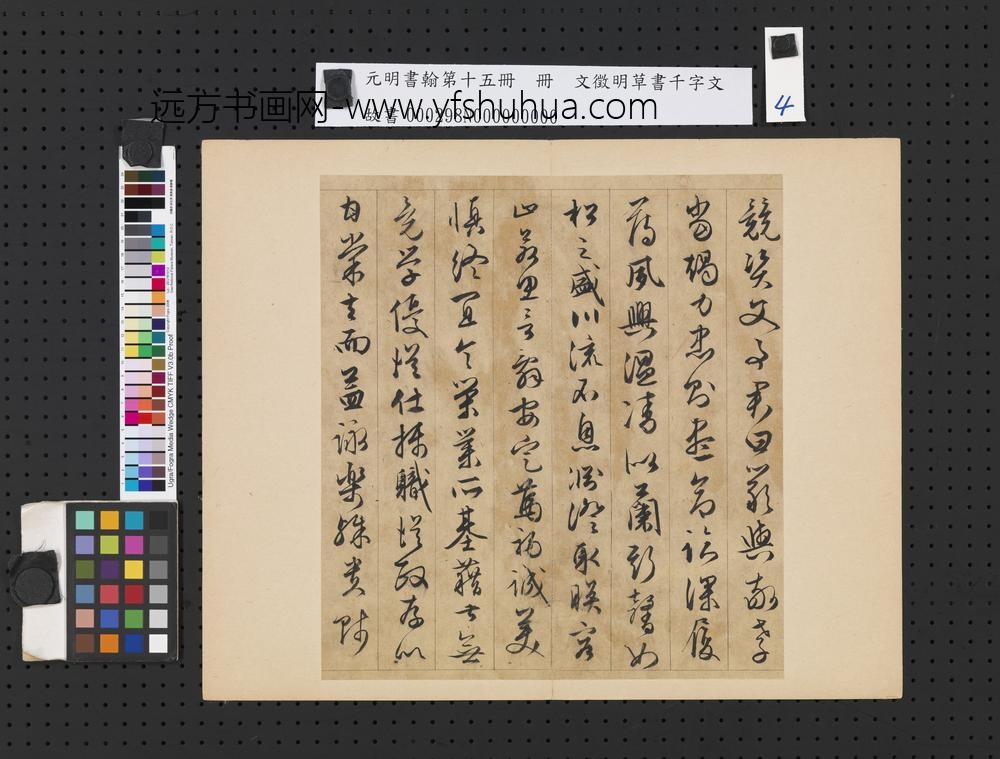 元明書翰第十五冊　冊　文徵明草書千字文
故書 000298N000000000
远方书画网 www.yfshuhua.com
4
競資父事君曰嚴與敬孝
當竭力忠則盡命臨深履
薄夙興溫凊似蘭斯馨如
松之盛川流不息淵澄取暎容
止若思言辭安定篤初誠美
慎終宜令榮業所基藉甚無
竟學優登仕攝職從政存以
甘棠去而益詠樂殊貴賤
Ugra/Fogra Media Wedge CMYK TIFF V3.0b Proof